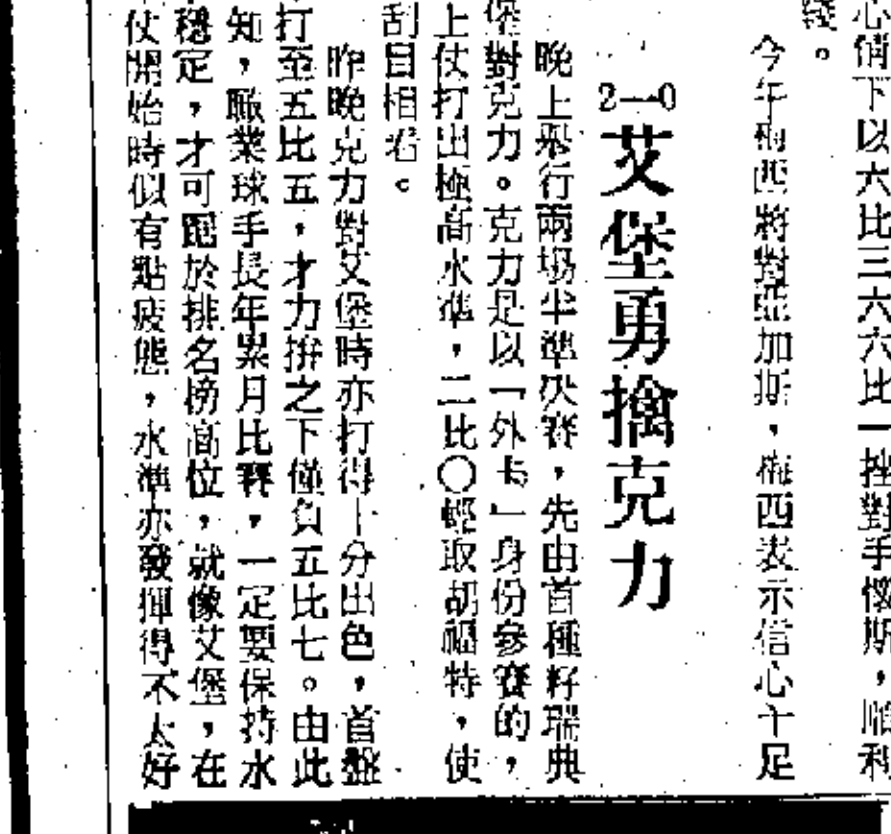 心情下以六比三六六比一挫對手懷斯，順利
綫。
今年梅西將對亞加斯，梅西表示信心十足
2—0艾堡勇擒克力
晚上舉行兩場半準決賽，先由首種籽瑞典
堡對克力。克力是以「外卡」身份參賽的，
上仗打出極高水準，二比〇輕取胡福特，使
刮目相看。
昨晚克力對艾堡時亦打得十分出色，首盤
打至五比五，才力拚之下僅負五比七。由此
知，職業球手長年累月比賽，一定要保持水
穩定，才可居於排名榜高位，就像艾堡，在
仗開始時似有點疲態，水準亦發揮得不太好